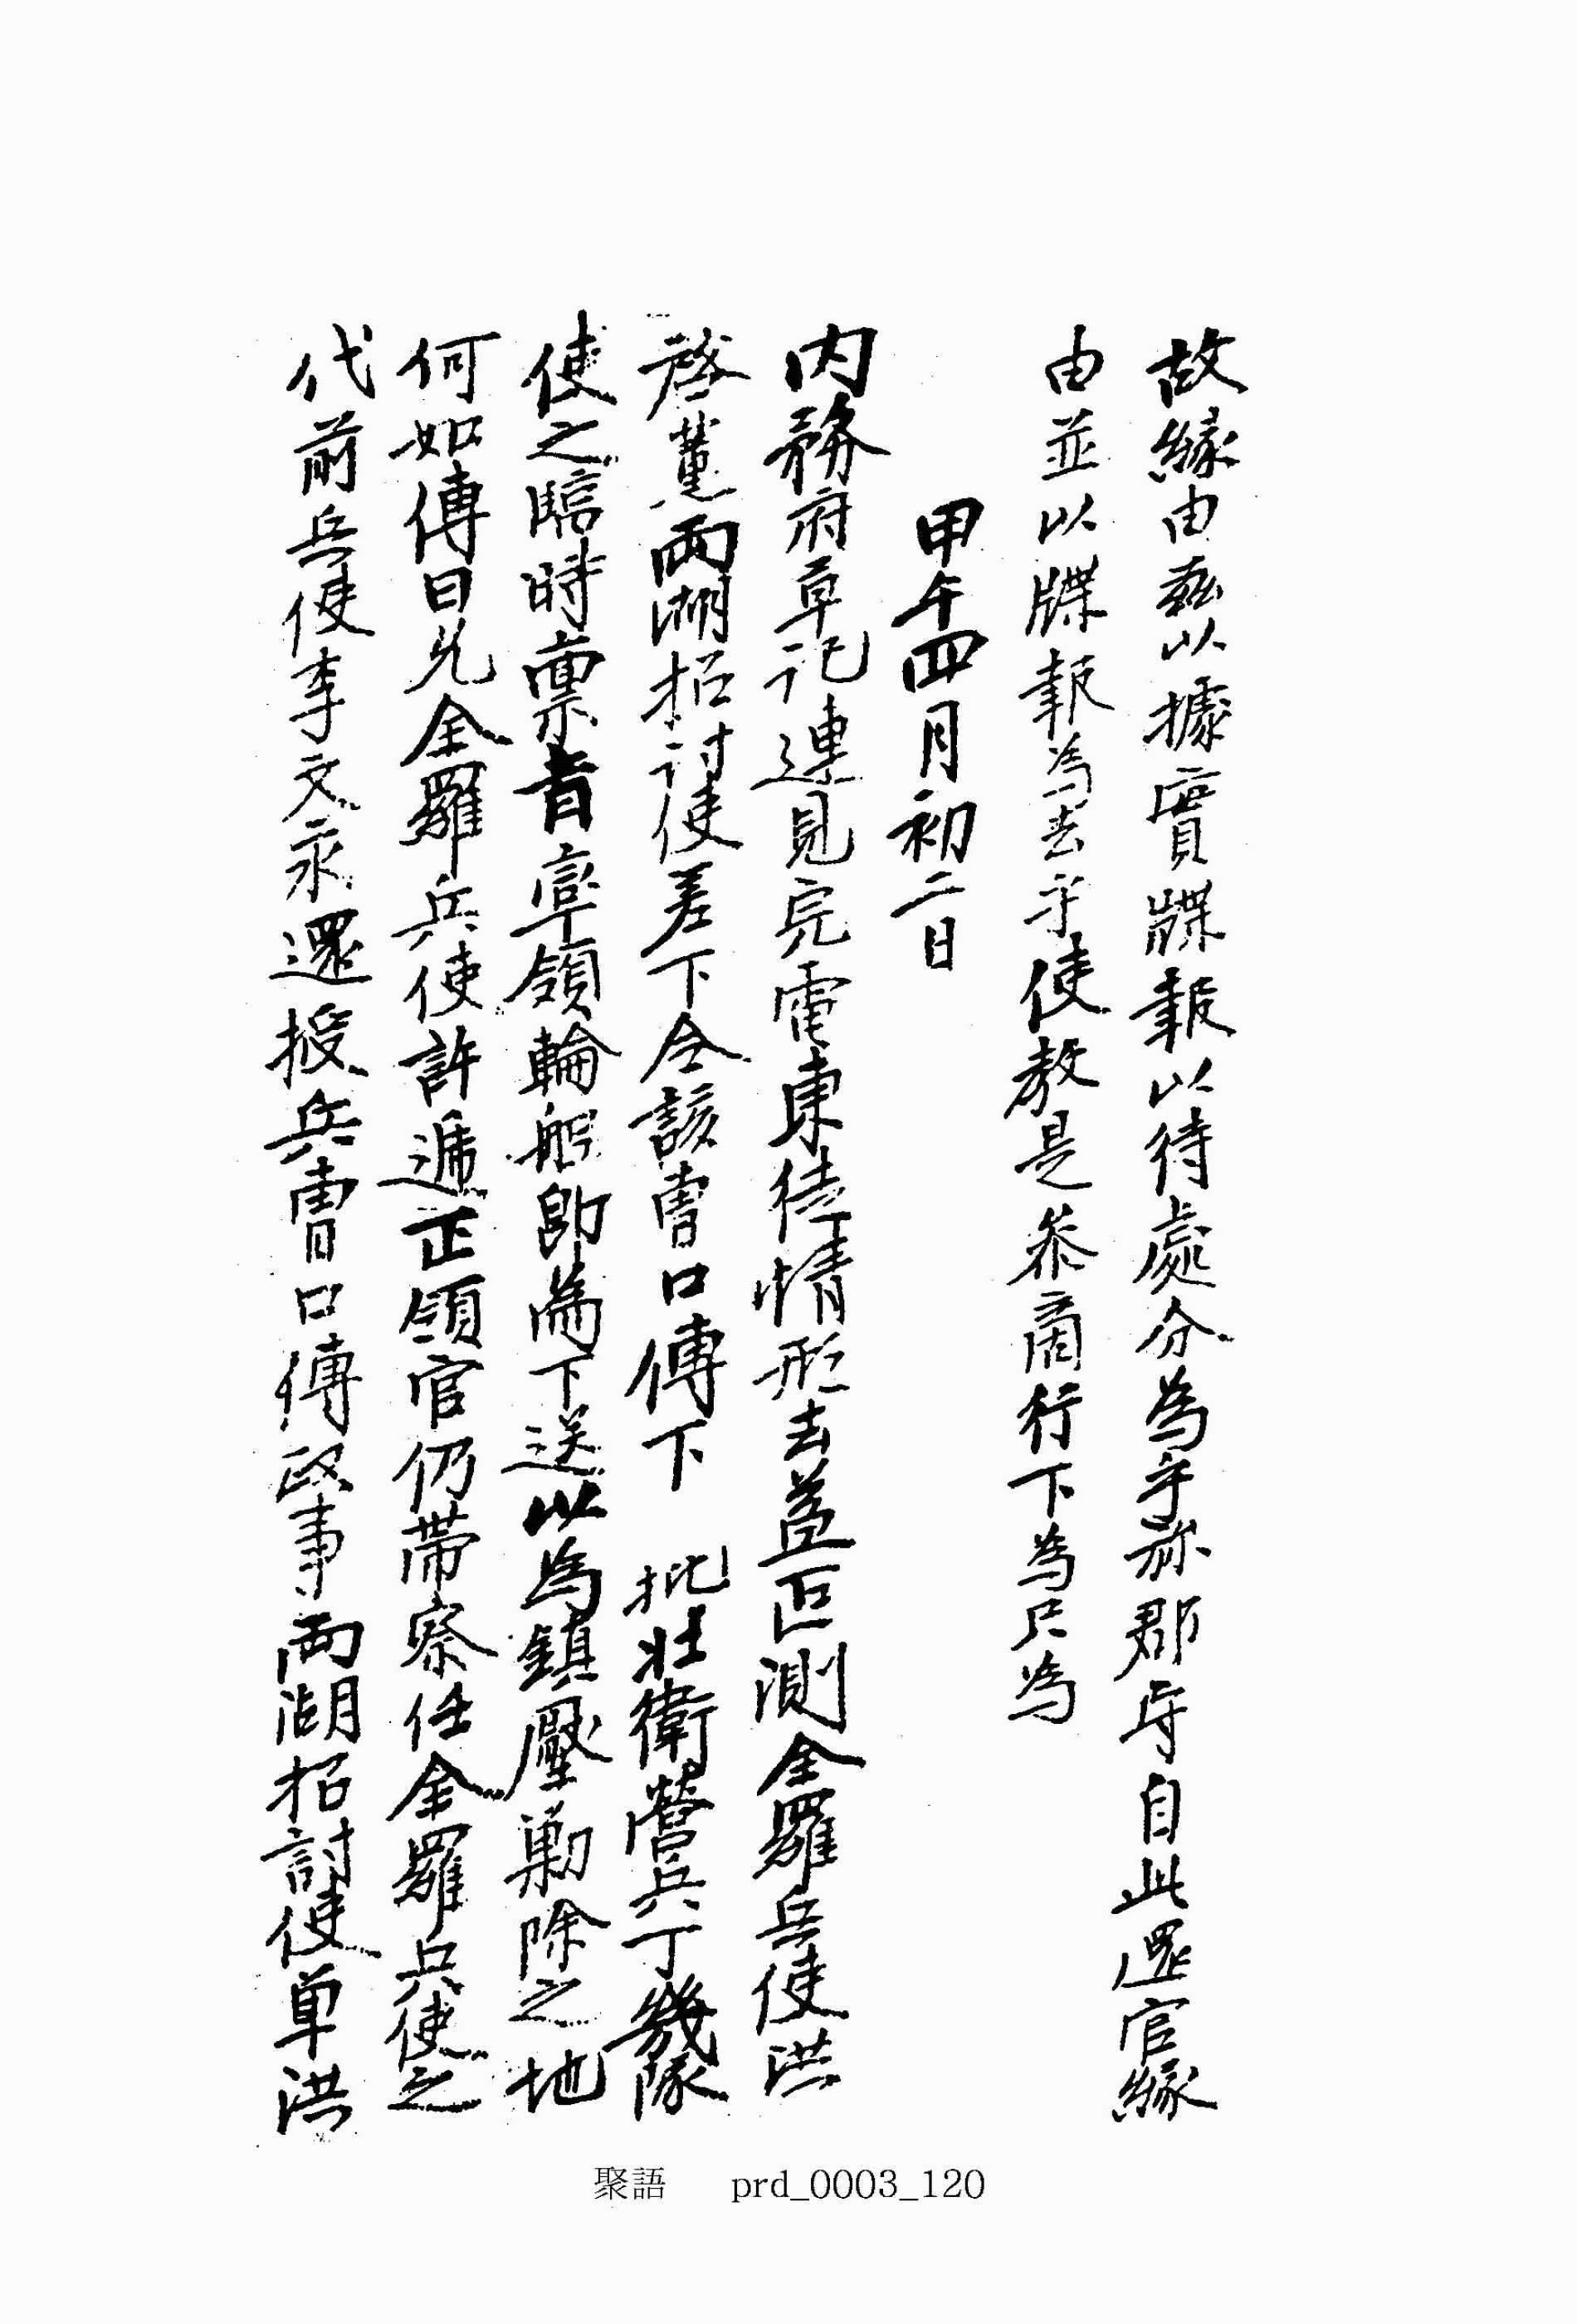 故緣由玆以據實牒報以待處分爲乎㫆郡守自此還官緣
由並以牒報爲去乎使敎是參商行下爲只爲
甲午四月初二日
內務府草記連見完電東徒情形去益叵測全羅兵使洪
啓薰兩湖招討使差下令該曹口傳下 批壯衛營兵丁幾隊
使之臨時稟旨率領輪船卽爲下送以爲鎭壓勦除之地
何如傳曰允全羅兵使許遞正領官仍帶察任全羅兵使之
代前兵使李文永還授兵曹口傳政事兩湖招討使單洪
聚語 prd_0003_120